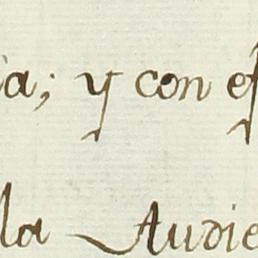 ia; y con ef
la Audie